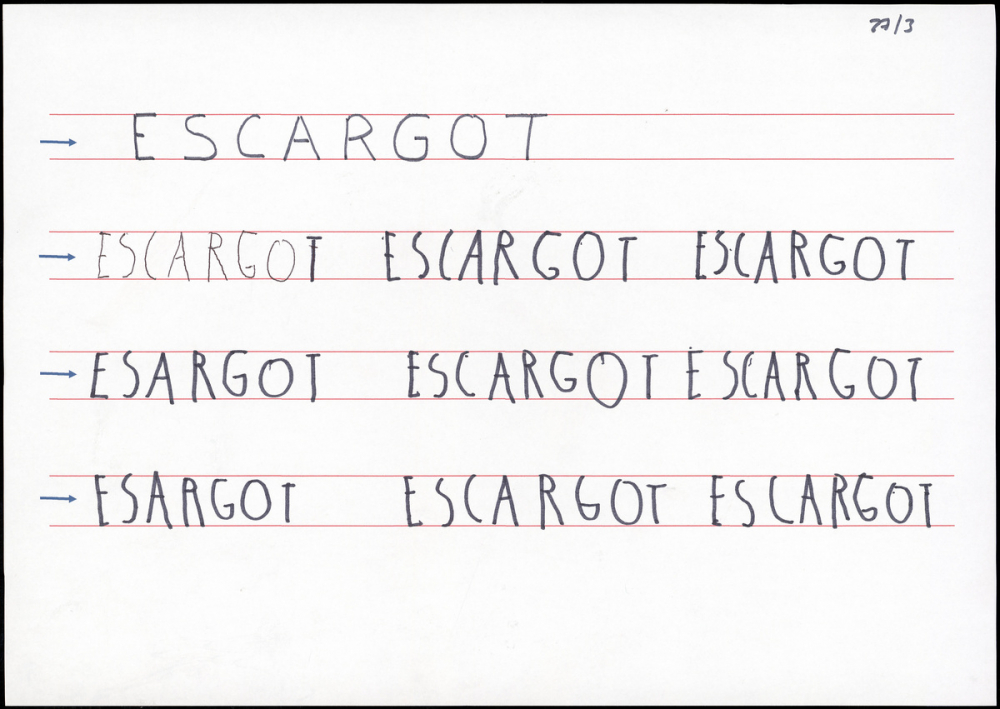 27/3
ESCARGOT
ESCARGOT ESCARGOT ESCARGOT
ESARGOT ESCARGOT ESCARGOT
ESARGOT ESCARGOT ESCARGOT